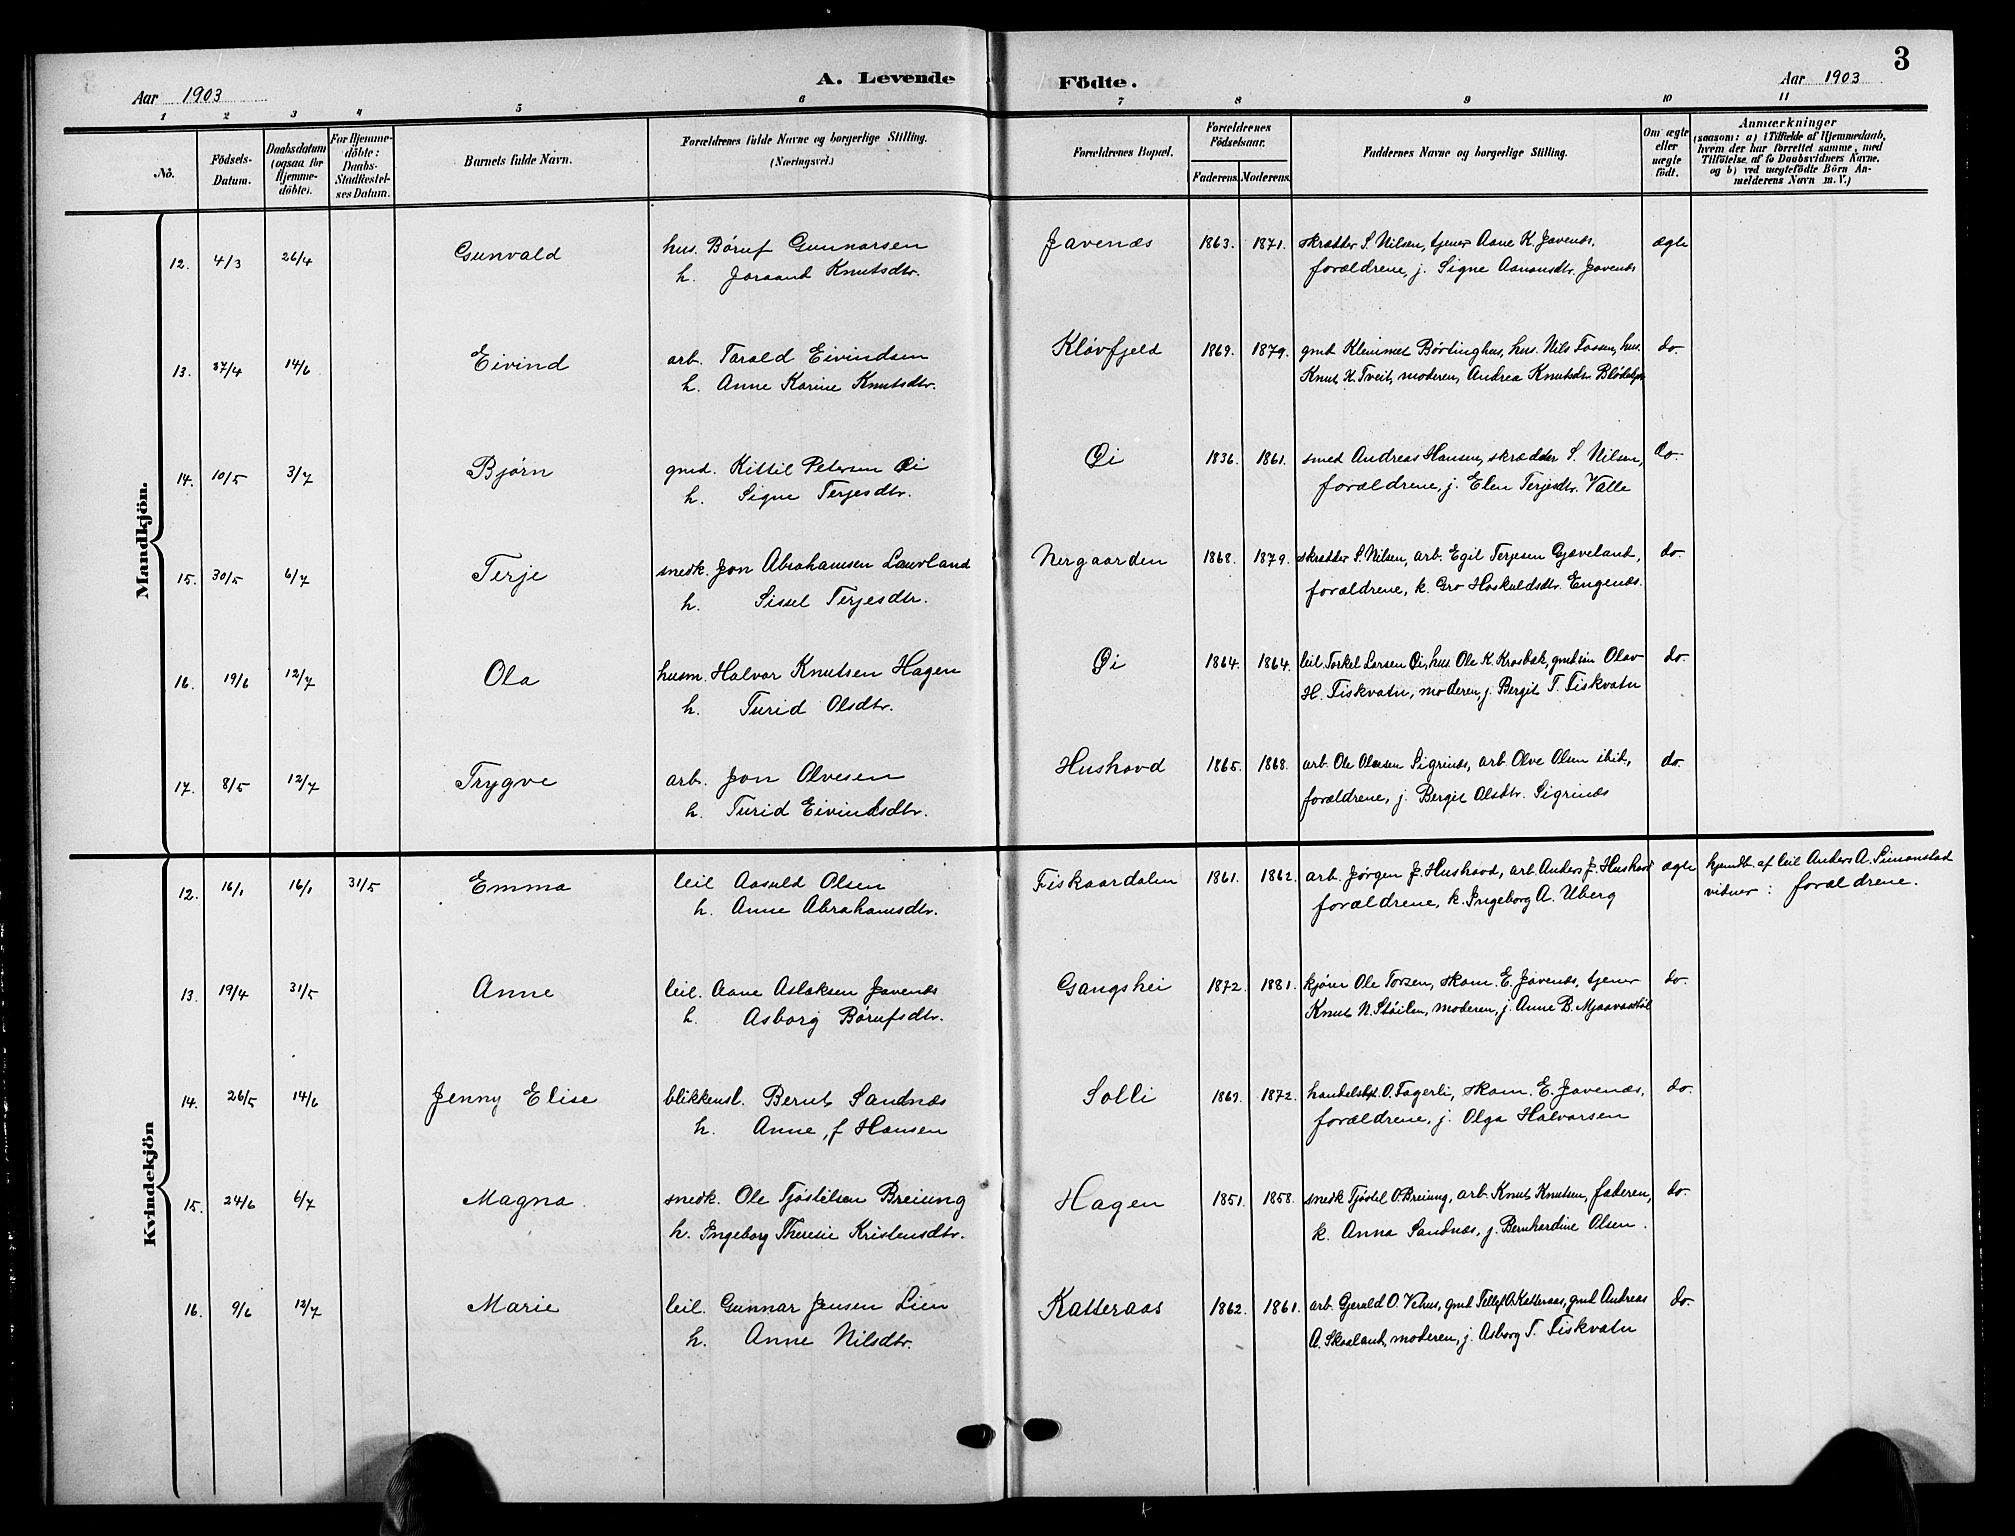 3
A. Levende Födte.
Aar 1903
Aar 1903
1 2 3 4 5 6 7 8 9 10 11
No.
Födsels-Datum.
Daabsdatum (ogsaa for Hjemmedöbte).
For Hjemmedöbte: Daabs-Stadfæstelses Datum.
Barnets fulde Navn.
Forældrenes fulde Navne og borgerlige Stilling. (Næringsvei.)
Forældrenes Bopæl.
Forældrenes Födselsaar.
Faderens. Moderens.
Faddernes Navne og borgerlige Stilling.
Om ægte eller uægte födt.
Anmærkninger
(saasom: a) i Tilfælde af Hjemmedaab, hvem der har forrettet samme, med Tilföielse af to Daabsvidners Navne. og b) ved uægtefödte Börn Anmelderens Navn m. V.)
Mandkjön.
12. 4/3 26/4 Gunvald hus. Børuf Gunnarsen Javenæs 1863. 1871. skrædder S. Nilsen, tjener Aane K. Javenæs, ægte
h. Joraand Knutsdtr. forældrene, j. Signe Aanonsdtr. Javenæs
13. 27/4 14/6 Eivind arb. Tarald Eivindsen Kløvfjeld 1869. 1879. gmd Klemmet Børtinghus, hus. Nils Fossen, hus. do.
h. Anne Karine Knutsdtr. Knut K. Tveit, moderen, Andrea Knutsdtr.
14. 10/5 3/7 Bjørn gmd. Kittil Petersen Øi Øi 1836. 1861. smed Andreas Hansen, skrædder S. Nilsen, do.
h. Signe Terjesdtr. forældrene, j. Elen Terjesdtr. Valle
15. 30/5 6/7 Terje snedk. Jon Abrahamsen Lauvland Nergaarden 1868. 1879. skrædder S. Nilsen, arb. Egil Terjesen Gjæveland, do.
h. Sissel Terjesdtr. forældrene, k. Gro Hoskuldsdtr. Engenæs.
16. 19/6 12/7 Ola husm. Halvor Knutsen Hagen Øi 1864. 1864. leil. Torkel Larsen Øi, hus. Ole K. Krosbæk, gmdsøn Olav do.
h. Turid Olsdtr. H. Fiskvatn, moderen, j. Bergit T. Fiskvatn
17. 8/5 12/7 Trygve arb. Jon Olvesen Hushovd 1865. 1868. arb. Ole Olvesen Sigrinæs, arb. Olve Olsen ibid, do.
h. Turid Eivindsdtr. forældrene, j. Bergit Olsdtr. Sigrinæs
Kvindekjön
12. 16/1 16/1 31/5 Emma leil Aasuld Olsen Fiskaardalen 1861. 1862. arb. Jørgen J. Hushovd, arb. Anders J. Hushovd ægte hjemdt. af leil Anders A. Simonstad
h. Anne Abrahamsdtr. forældrene, k. Ingeborg A. Uberg vidner: forældrene.
13. 19/4 31/5 Anne leil. Aane Aslaksen Javenæs Gangshei 1872. 1881. kjører Ole Torsen, skom. E. Javenæs, tjener do.
h. Asborg Børufsdtr. Knut N. Støilen, moderen, j. Anne B. Mjaavasstøl
14. 26/5 14/6 Jenny Elise blikkensl. Bernt Sandnæs Solli 1869. 1872. handelsbt. O. Fagerli, skom. E. Javenæs, do.
h. Anne, f Hansen forældrene, j. Olga Halvorsen
15. 24/6 6/7 Magna. snedk. Ole Tjøstelsen Breiung Hagen 1851. 1858. snedk Tjøstel O. Breiung, arb. Knut Knutsen, faderen, do.
h. Ingeborg Theresie Kristensdtr. k. Anna Sandnæs, j. Bernhardine Olsen.
16. 9/6 12/7 Marie leil. Gunnar Jensen Lien Katteraas 1862. 1861. arb. Gjeruld O. Vehus, gmd Tellef O. Katteraas, gmd Andreas do.
h. Anne Nilsdtr. A. Skaaland, moderen, j. Asborg T. Fiskvatn